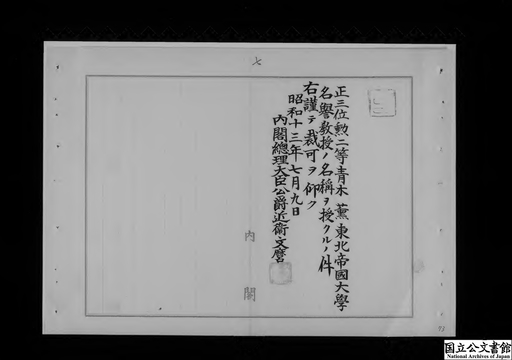 七
正三位勲二等青木薫東北帝國大學
名譽教授ノ名稱ヲ授クルノ件
右謹テ裁可ヲ仰ク
昭和十三年七月九日
内閣總理大臣公爵近衞文麿
内閣
93
国立公文書館
National Archives of Japan